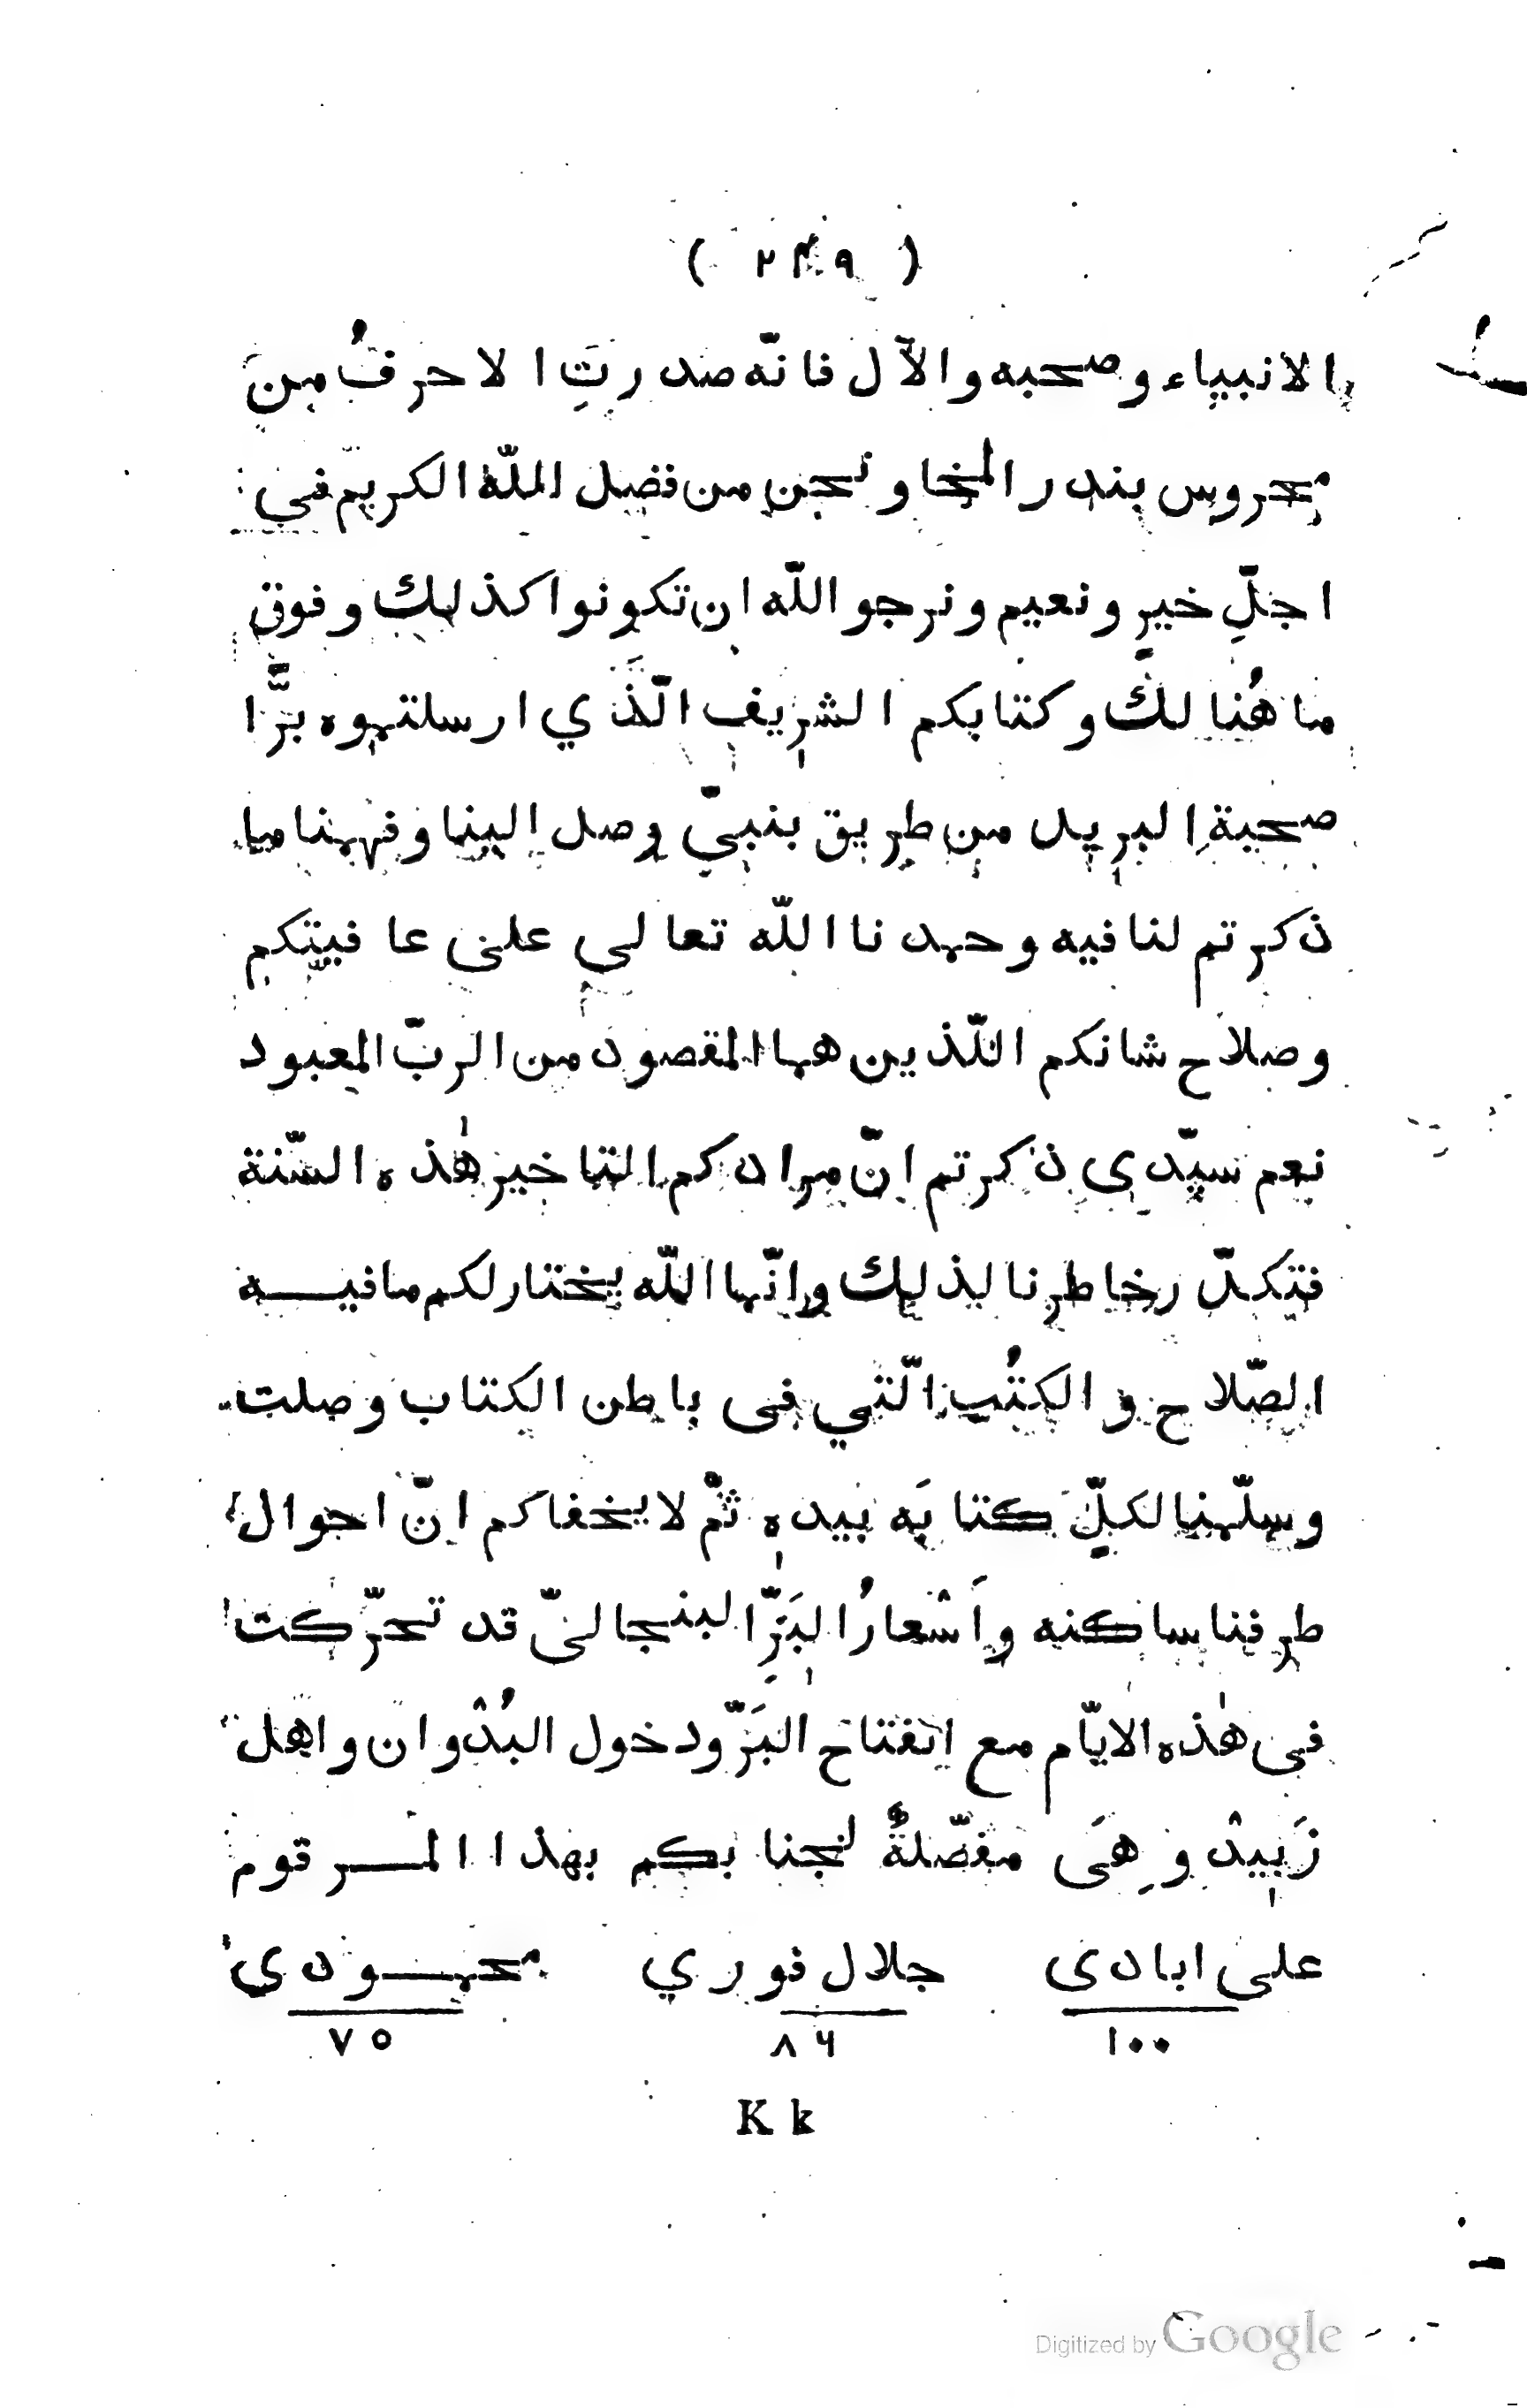 ( ٢٤٩ )
الانبياء وصحبه والآل فانّه صدرتِ الاحرفُ منَ
محروس بندر المخا ونحن من فضل اللّه الكريم في
اجلِّ خيرٍ ونعيم ونرجو اللّه ان تكونوا كذلك وفوق
ما هُنالك وكتابكم الشريف الّذي ارسلتموه برًّا
صحبةِ البريد من طريق بنبيّ وصل الينا وفهمنا ما
ذكرتم لنا فيه وحمدنا اللّه تعالي على عافيتكم
وصلاح شانكم اللّذين هما المقصود من الربّ المعبود
نعم سيّدى ذكرتم انّ مرادكم التاخير هٰذه السّنة
فتكدّر خاطرنا لذلك وانّما اللّه يختار لكم ما فيـــه
الصّلاح والكتُب الّتي فى باطن الكتاب وصلت
وسلّمنا لكلٍّ كتابَه بيدهِ ثمّ لا يخفاكم انّ احوال
طرفنا ساكنه واَشْعارُ البَزِّ البنجاليّ قد تحرّكت
فى هٰذه الايّام مع انفتاح البَرّ ودخول البُدْوان واهل
زَبِيدْ وهِىَ مفصّلةٌ لجنابكم بهذا المـــرقوم
على ابادى جلال فوري محمـــودي
١٠٠ ٨٦ ٧٥
K k
Digitized by Google